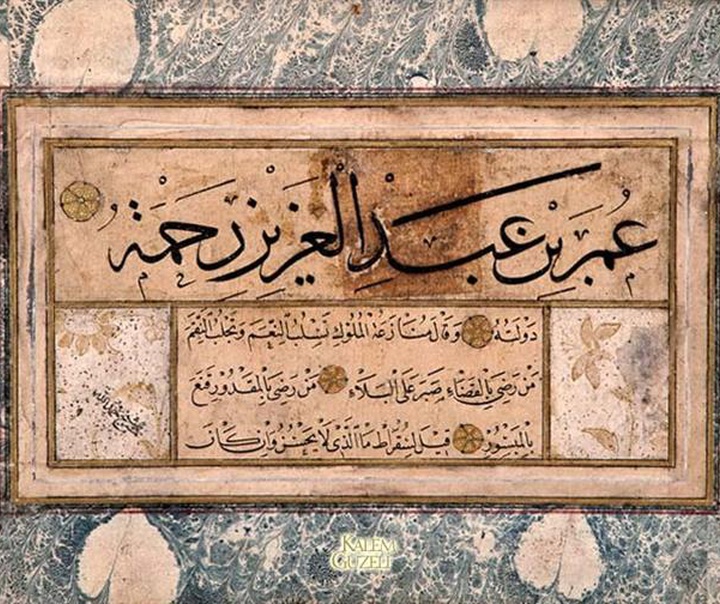 عُمَر بْن عَبْدِ الْعَزِيز رَحْمَة
دولته وقال منازعة الملوك تسلب النعم وتجلب النقم
من رضي بالقضاء صبر على البلاء من رضي بالمقدور قنع
بالميسور قيل لسقراط ما الذي لا يحسن وان كان
KALEM
GÜZELİ